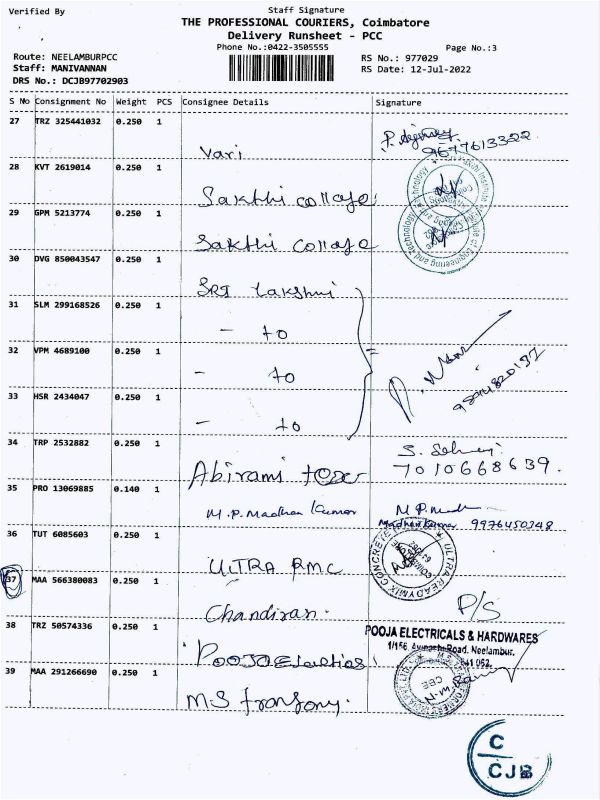 Verified By
Staff Signature
THE PROFESSIONAL COURIERS, Coimbatore
Delivery Runsheet - PCC
Phone No.:0422-3505555
Page No.:3
Route: NEELAMBURPCC
RS No.: 977029
Staff: MANIVANNAN
RS Date: 12-Jul-2022
DRS No.: DCJB97702903
S No Consignment No Weight PCS Consignee Details Signature
27 TRZ 325441032 0.250 1
Vari
9677613322
28 KVT 2619014 0.250 1
Sakthi college
29 GPM 5213774 0.250 1
Sakthi college
30 DVG 850043547 0.250 1
SRI Lakshmi
31 SLM 299168526 0.250 1
- to
32 VPM 4689100 0.250 1
- to
33 HSR 2434047 0.250 1
- to
34 TRP 2532882 0.250 1
Abirami tex
7010668639.
35 PRO 13069885 0.140 1
M.P. Madhan Kumar
Madhan Kumar 9976450248
36 TUT 6085603 0.250 1
ULTRA RMC
ULTRA READYMIX CONCRETE
37 MAA 566380083 0.250 1
Chandiran.
P/S
38 TRZ 50574336 0.250 1
Pooja Electricals
POOJA ELECTRICALS & HARDWARES
1/156, Avinashi Road, Neelambur.
641 062.
39 MAA 291266690 0.250 1
CBE
C
CJB